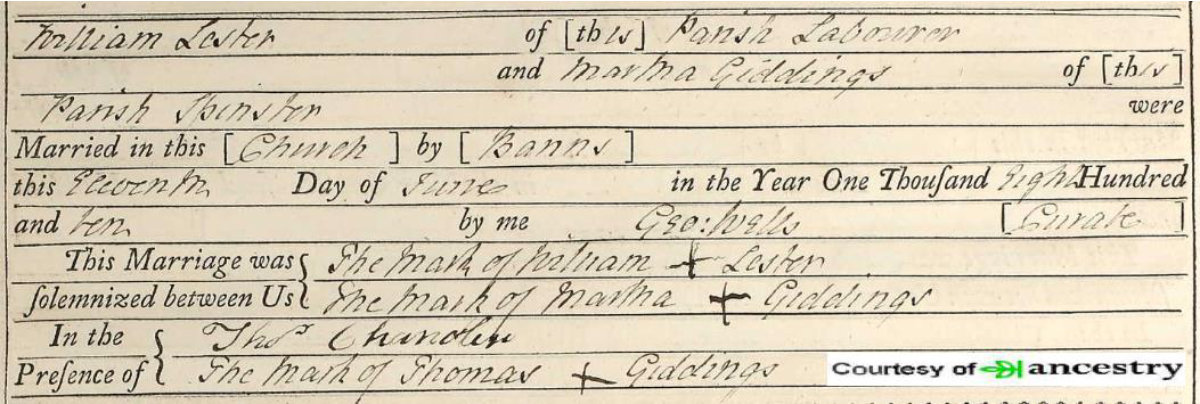 William Lester of [this] Parish Labourer
and Martha Giddings of [this]
Parish Spinster were
Married in this [Church] by [Banns]
this Eleventh Day of June in the Year One Thouſand Eight Hundred
and ten by me Geo: Wells [Curate]
This Marriage was { The Mark of William + Lester
ſolemnized between Us { The Mark of Martha + Giddings
In the { Thos Chandler
Preſence of { The Mark of Thomas + Giddings
Courtesy of ancestry